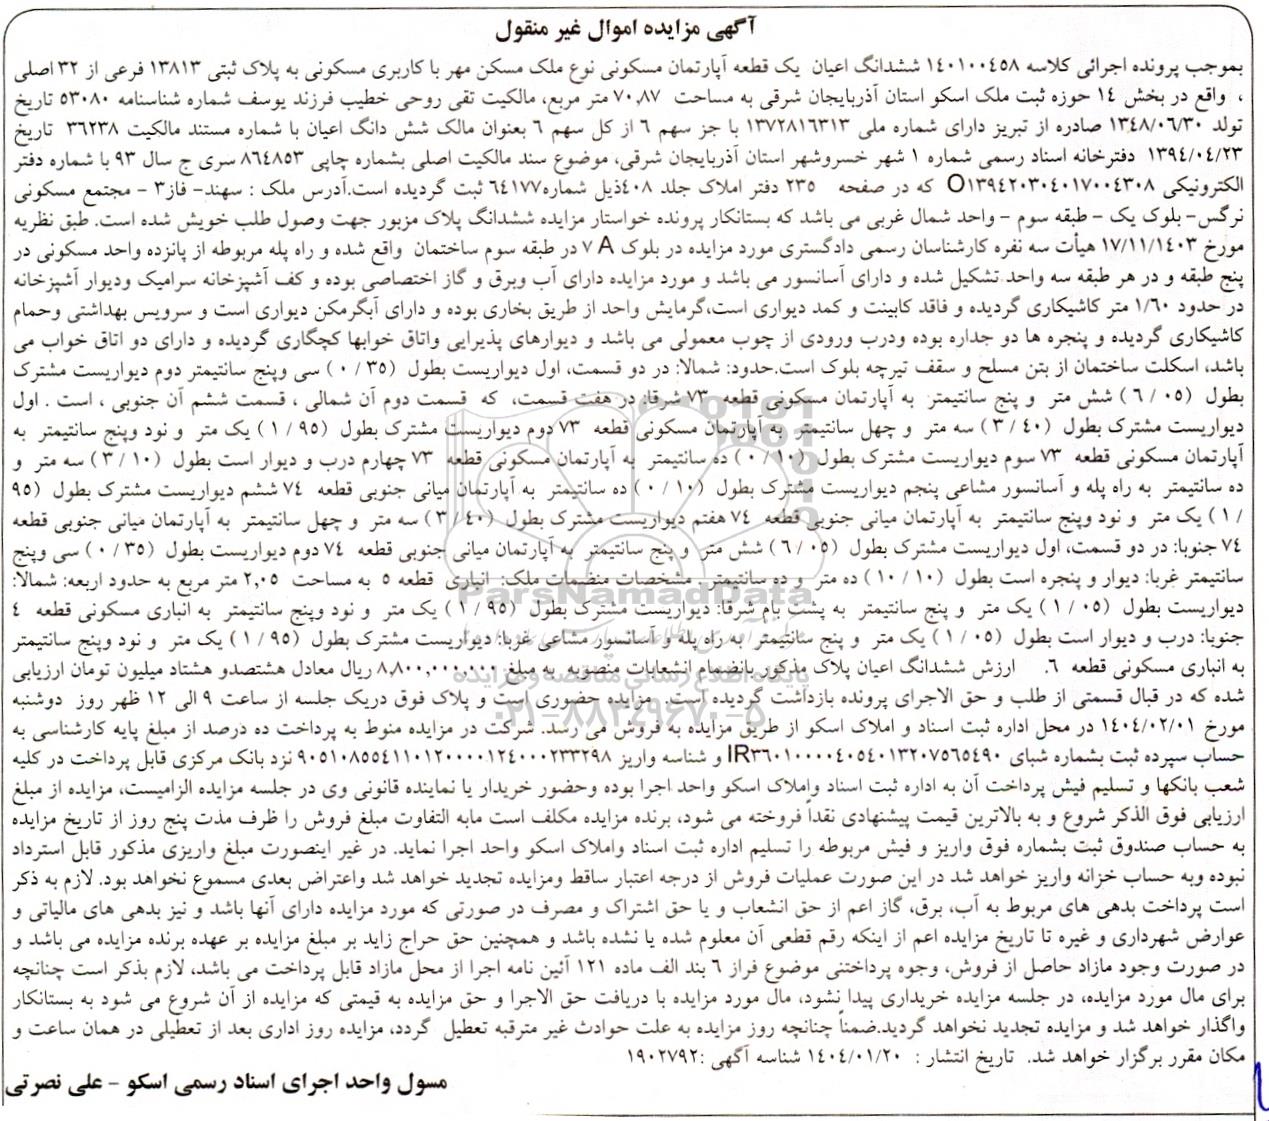 آگهی مزایده اموال غیر منقول
بموجب پرونده اجرائی کلاسه ۱۴۰۱۰۰۴۵۸ ششدانگ اعیان یک قطعه آپارتمان مسکونی نوع ملک مسکن مهر با کاربری مسکونی به پلاک ثبتی ۱۳۸۱۳ فرعی از ۳۲ اصلی
، واقع در بخش ۱۴ حوزه ثبت ملک اسکو استان آذربایجان شرقی به مساحت ۷۰,۸۷ متر مربع، مالکیت تقی روحی خطیب فرزند یوسف شماره شناسنامه ۵۳۰۸۰ تاریخ
تولد ۱۳۴۸/۰۶/۳۰ صادره از تبریز دارای شماره ملی ۱۳۷۲۸۱۶۳۱۳ با جز سهم ۶ از کل سهم ۶ بعنوان مالک شش دانگ اعیان با شماره مستند مالکیت ۳۶۲۳۸ تاریخ
۱۳۹۴/۰۴/۲۳ دفترخانه اسناد رسمی شماره ۱ شهر خسروشهر استان آذربایجان شرقی، موضوع سند مالکیت اصلی بشماره چاپی ۸۶۴۸۵۳ سری ج سال ۹۳ با شماره دفتر
الکترونیکی O۱۳۹۴۲۰۳۰۴۰۱۷۰۰۴۳۰۸ که در صفحه ۲۳۵ دفتر املاک جلد ۴۰۸ذیل شماره۶۴۱۷۷ ثبت گردیده است.آدرس ملک : سهند- فاز۳ - مجتمع مسکونی
نرگس- بلوک یک - طبقه سوم - واحد شمال غربی می باشد که بستانکار پرونده خواستار مزایده ششدانگ پلاک مزبور جهت وصول طلب خویش شده است. طبق نظریه
مورخ ۱۷/۱۱/۱۴۰۳ هیأت سه نفره کارشناسان رسمی دادگستری مورد مزایده در بلوک ۷ A در طبقه سوم ساختمان واقع شده و راه پله مربوطه از پانزده واحد مسکونی در
پنج طبقه و در هر طبقه سه واحد تشکیل شده و دارای آسانسور می باشد و مورد مزایده دارای آب وبرق و گاز اختصاصی بوده و کف آشپزخانه سرامیک ودیوار آشپزخانه
در حدود ۱/۶۰ متر کاشیکاری گردیده و فاقد کابینت و کمد دیواری است،گرمایش واحد از طریق بخاری بوده و دارای آبگرمکن دیواری است و سرویس بهداشتی وحمام
کاشیکاری گردیده و پنجره ها دو جداره بوده ودرب ورودی از چوب معمولی می باشد و دیوارهای پذیرایی واتاق خوابها کچگاری گردیده و دارای دو اتاق خواب می
باشد، اسکلت ساختمان از بتن مسلح و سقف تیرچه بلوک است.حدود: شمالا: در دو قسمت، اول دیواریست بطول (۳۵ / ۰) سی وپنج سانتیمتر دوم دیواریست مشترک
بطول (۰۵ / ۶) شش متر و پنج سانتیمتر به آپارتمان مسکونی قطعه ۷۳ شرقا: در هفت قسمت، که قسمت دوم آن شمالی ، قسمت ششم آن جنوبی ، است . اول
دیواریست مشترک بطول (۴۰ / ۳) سه متر و چهل سانتیمتر به آپارتمان مسکونی قطعه ۷۳ دوم دیواریست مشترک بطول (۹۵ / ۱) یک متر و نود وپنج سانتیمتر به
آپارتمان مسکونی قطعه ۷۳ سوم دیواریست مشترک بطول (۱۰ / ۰) ده سانتیمتر به آپارتمان مسکونی قطعه ۷۳ چهارم درب و دیوار است بطول (۱۰ / ۳) سه متر و
ده سانتیمتر به راه پله و آسانسور مشاعی پنجم دیواریست مشترک بطول (۱۰ / ۰) ده سانتیمتر به آپارتمان میانی جنوبی قطعه ۷۴ ششم دیواریست مشترک بطول (۹۵
/ ۱) یک متر و نود وپنج سانتیمتر به آپارتمان میانی جنوبی قطعه ۷۴ هفتم دیواریست مشترک بطول (۴۰ / ۳) سه متر و چهل سانتیمتر به آپارتمان میانی جنوبی قطعه
۷۴ جنوبا: در دو قسمت، اول دیواریست مشترک بطول (۰۵ / ۶) شش متر و پنج سانتیمتر به آپارتمان میانی جنوبی قطعه ۷۴ دوم دیواریست بطول (۳۵ / ۰) سی وپنج
سانتیمتر غربا: دیوار و پنجره است بطول (۱۰ / ۱۰) ده متر و ده سانتیمتر مشخصات منضمات ملک: انباری قطعه ۵ به مساحت ۲,۰۵ متر مربع به حدود اربعه: شمالا:
دیواریست بطول (۰۵ / ۱) یک متر و پنج سانتیمتر به پشت بام شرقا: دیواریست مشترک بطول (۹۵ / ۱) یک متر و نود وپنج سانتیمتر به انباری مسکونی قطعه ۴
جنوبا: درب و دیوار است بطول (۰۵ / ۱) یک متر و پنج سانتیمتر به راه پله و آسانسور مشاعی غربا: دیواریست مشترک بطول (۹۵ / ۱) یک متر و نود وپنج سانتیمتر
به انباری مسکونی قطعه ۶. ارزش ششدانگ اعیان پلاک مذکور بانضمام انشعابات منصوبه به مبلغ ۸,۸۰۰,۰۰۰,۰۰۰ ریال معادل هشتصدو هشتاد میلیون تومان ارزیابی
شده که در قبال قسمتی از طلب و حق الاجرای پرونده بازداشت گردیده است . مزایده حضوری است و پلاک فوق دریک جلسه از ساعت ۹ الی ۱۲ ظهر روز دوشنبه
مورخ ۱۴۰۴/۰۲/۰۱ در محل اداره ثبت اسناد و املاک اسکو از طریق مزایده به فروش می رسد. شرکت در مزایده منوط به پرداخت ده درصد از مبلغ پایه کارشناسی به
حساب سپرده ثبت بشماره شبای IR۳۶۰۱۰۰۰۰۴۰۵۴۰۱۳۲۰۷۵۶۵۴۹۰ و شناسه واریز ۹۰۵۱۰۸۵۵۴۱۱۰۱۲۰۰۰۰۱۲۴۰۰۰۲۳۳۲۹۸ نزد بانک مرکزی قابل پرداخت در کلیه
شعب بانکها و تسلیم فیش پرداخت آن به اداره ثبت اسناد واملاک اسکو واحد اجرا بوده وحضور خریدار یا نماینده قانونی وی در جلسه مزایده الزامیست، مزایده از مبلغ
ارزیابی فوق الذکر شروع و به بالاترین قیمت پیشنهادی نقداً فروخته می شود، برنده مزایده مکلف است مابه التفاوت مبلغ فروش را ظرف مدت پنج روز از تاریخ مزایده
به حساب صندوق ثبت بشماره فوق واریز و فیش مربوطه را تسلیم اداره ثبت اسناد واملاک اسکو واحد اجرا نماید. در غیر اینصورت مبلغ واریزی مذکور قابل استرداد
نبوده وبه حساب خزانه واریز خواهد شد در این صورت عملیات فروش از درجه اعتبار ساقط ومزایده تجدید خواهد شد واعتراض بعدی مسموع نخواهد بود. لازم به ذکر
است پرداخت بدهی های مربوط به آب، برق، گاز اعم از حق انشعاب و یا حق اشتراک و مصرف در صورتی که مورد مزایده دارای آنها باشد و نیز بدهی های مالیاتی و
عوارض شهرداری و غیره تا تاریخ مزایده اعم از اینکه رقم قطعی آن معلوم شده یا نشده باشد و همچنین حق حراج زاید بر مبلغ مزایده بر عهده برنده مزایده می باشد و
در صورت وجود مازاد حاصل از فروش، وجوه پرداختنی موضوع فراز ۶ بند الف ماده ۱۲۱ آئین نامه اجرا از محل مازاد قابل پرداخت می باشد، لازم بذکر است چنانچه
برای مال مورد مزایده، در جلسه مزایده خریداری پیدا نشود، مال مورد مزایده با دریافت حق الاجرا و حق مزایده به قیمتی که مزایده از آن شروع می شود به بستانکار
واگذار خواهد شد و مزایده تجدید نخواهد گردید.ضمناً چنانچه روز مزایده به علت حوادث غیر مترقبه تعطیل گردد، مزایده روز اداری بعد از تعطیلی در همان ساعت و
مکان مقرر برگزار خواهد شد. تاریخ انتشار : ۱۴۰۴/۰۱/۲۰ شناسه آگهی :۱۹۰۲۷۹۲
مسول واحد اجرای اسناد رسمی اسکو - علی نصرتی
ParsNamadData
پایگاه اطلاع رسانی مناقصه و مزایده
۰۲۱-۸۸۳۴۹۶۷۰-۵